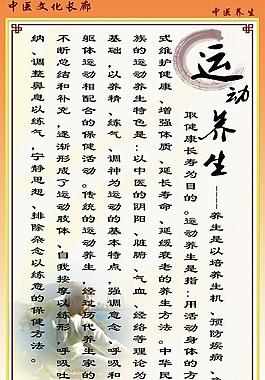 中医文化长廊
中医养生
运动养生
——养生是以培养生机、预防疾病、争
取健康长寿为目的。运动养生是指:用活动身体的方
式维护健康、增强体质、延长寿命、延缓衰老的养生方法。中华民
族的运动养生特色是:以中医的阴阳、脏腑、气血、经络等理论为
基础,以养精、练气、调神为运动的基本特点,强调意念、呼吸和
躯体运动相配合的保健活动。传统的运动养生,经过历代养生家的
不断总结和补充,逐渐形成了运动肢体、自我按摩以练形,呼吸吐
纳、调整鼻息以练气,宁静思想、排除杂念以练意的保健方法。